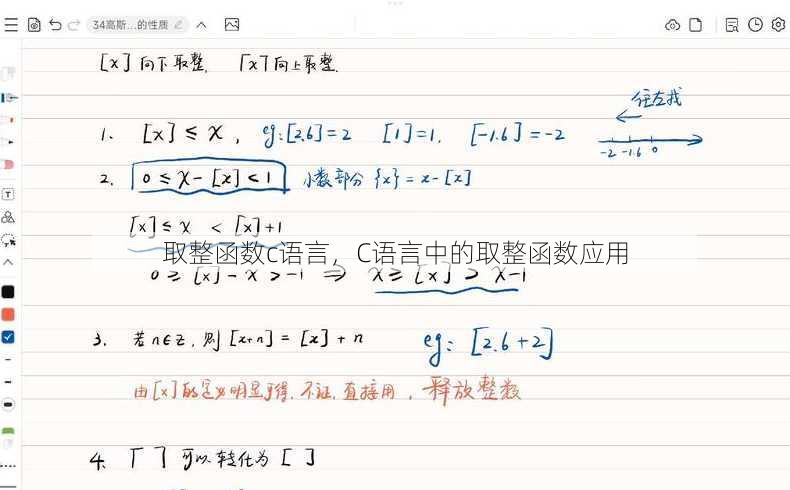 34高斯...的性质
[x]向下取整, ⌈x⌉向上取整.
往左找
1. [x] ≤ x, eg:[2.6]=2 [1]=1. [-1.6]=-2
-2 -1.6 0
2. 0 ≤ x-[x]<1 小数部分{x}=x-[x]
[x]≤ x < [x]+1
取整函数c语言，C语言中的取整函数应用
0 ≥ [x]-x >-1 ⇒ x ≥ [x] > x-1
3. 若n∈Z, 则[x+n]=[x]+n eg: [2.6+2]
由[x]的定义明显可得, 不证, 直接用, 释放整数
4. ⌈ ⌉ 可以转化为 [ ]